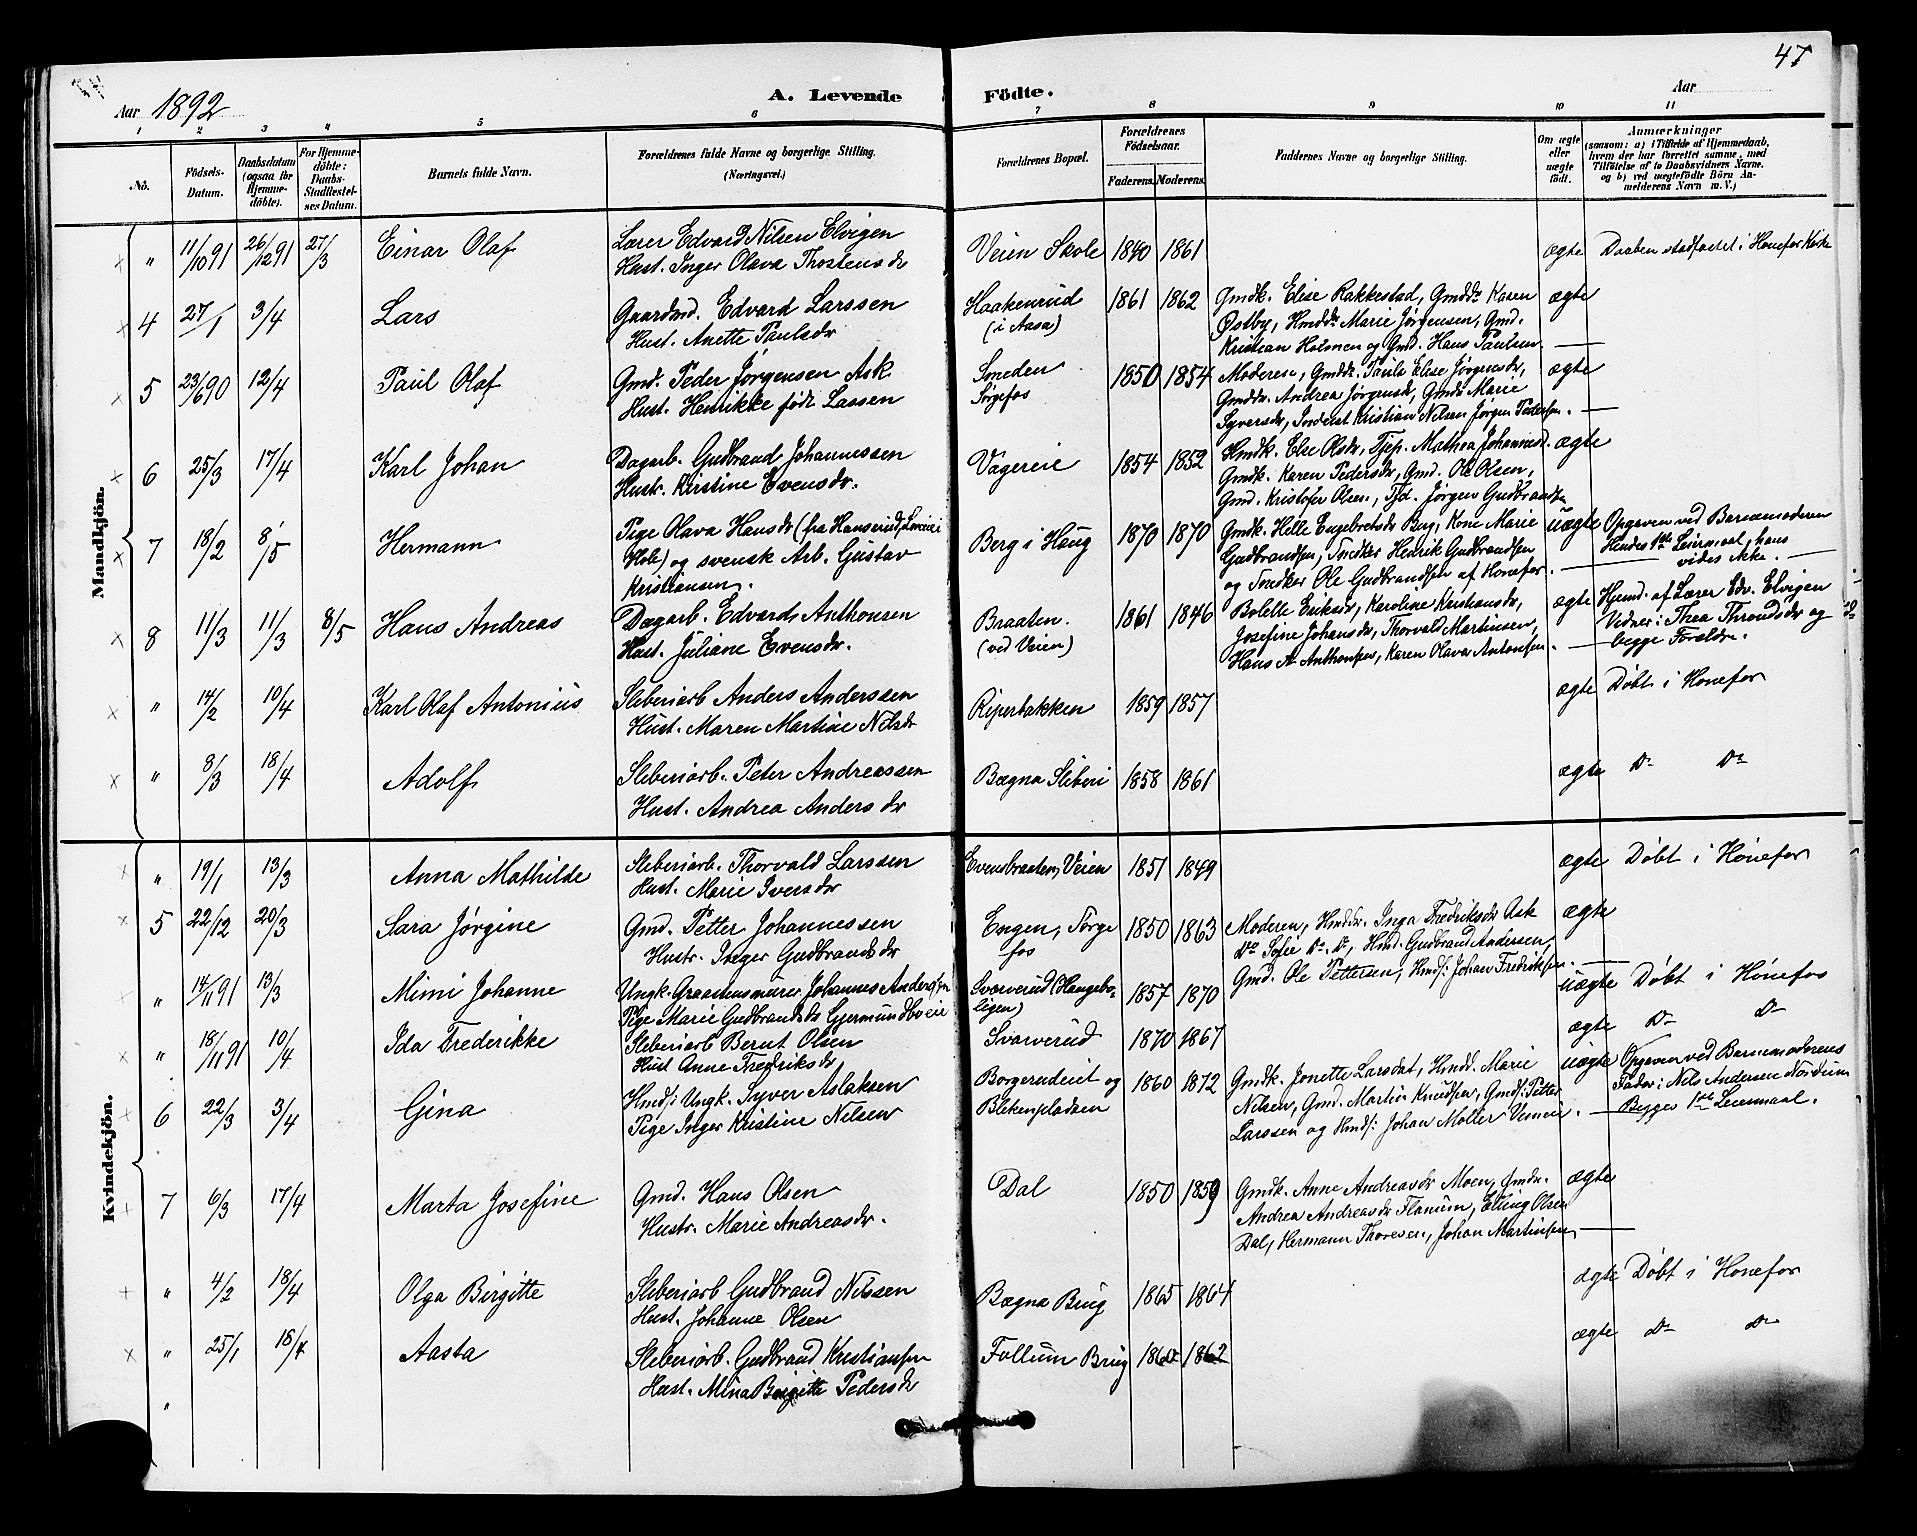 47
Aar 1892
A. Levende Födte.
Aar
1 2 3 4 5 6 7 8 9 10 11
No.
Födsels-
Datum.
Daabsdatum
(ogsaa for
Hjemme-
döbte).
For Hjemme-
döbte:
Daabs-
Stadfæstel-
ses Datum.
Barnets fulde Navn.
Forældrenes fulde Navne og borgerlige Stilling.
(Næringsvei.)
Forældrenes Bopæl.
Forældrenes
Födselsaar.
Faderens. Moderens.
Faddernes Navne og borgerlige Stilling.
Om ægte
eller
uægte
födt.
Anmærkninger
(saasom: a) i Tilfælde af Hjemmedaab,
hvem der har forrettet samme, med
Tilföielse af to Daabsvidners Navne.
og b) ved uægtefödte Börn An-
melderens Navn m. V.)
Mandkjön.
" 11/10 91 26/12 91 27/3 Einar Olaf
Lærer Edvard Nilsen Elvigen
Hust. Inger Olava Thostensdr
Veien Skole 1840 1861 ægte Daaben stadfæstet i Hønefos Kirke
4 27/1 3/4 Lars
Gaardmd. Edvard Larssen
Hust. Anette Paulsdr
Haakenrud
(i Aasa)
1861 1862
Gmdk. Elise Rakkestad, Gmddr Karen
Østby, Hmddr Marie Jørgensen, Gmd.
Kristian Holmen og Gmd. Hans Paulsen.
ægte
5 23/6 90 12/4 Paul Olaf
Gmd. Peder Jørgensen Ask
Hust. Henrikke født Lassen
Smeden
Sørgefos
1850 1854
Moderen, Gmddr. Paula Elise Jørgensdr,
Gmddr. Andrea Jørgensd, Gmdr Marie
Syversdr, Inderst Kristian Nilsen Jørgen Pedersen.
ægte
6 25/3 17/4 Karl Johan
Dagarb. Gudbrand Johannessen
Hustr. Kirstine Evensdr.
Vagereie 1854 1852
Hmdk. Else Olsdr, Tjep. Mathea Johannesd.
Gmdk. Karen Pedersdr, Gmd. Ole Olsen,
Gmd. Kristofer Olsen, Tjd. Jørgen Gudbrandsen
ægte
7 18/2 8/5 Hermann
Pige Olava Hansdr (fra Hanserud,
Hole) og svensk Arb. Gustav
Kristiansen.
Berg i Haug 1870 1870
Gmdk. Helle Engebretsdr Berg, Kone Marie
Gudbrandsen, Snedker Henrik Gudbrandsen
og Snedker Ole Gudbrandsen af Hønefos.
uægte
Opgaven ved Barnemoderen
Hendes 1ste Leiermaal, hans
vides ikke.
8 11/3 11/3 8/5 Hans Andreas
Dagarb. Edvard Anthonsen
Hust. Juliane Evensdr.
Braaten.
(ved Veien)
1861 1846
Bolette Eriksdr, Karoline Kristiansdr,
Josefine Johansdr, Thorvald Martinsen,
Hans A. Anthonsen, Karen Olava Antonsen.
ægte
Hjemd. af Lærer Edv. Elvigen
Vidner: Thea Throndsdr og
begge Forældre.
" 14/2 10/4 Karl Olaf Antonius
Sliberiarb Anders Anderssen
Hust. Maren Martine Nilsdr
Riperbakken 1859 1857 ægte Døbt i Hønefos
" 8/3 18/4 Adolf
Sliberiarb. Peter Andreassen
Hust. Andrea Andersdr
Bægna Sliberi 1858 1861 ægte Do Do
Kvindekjön.
" 19/1 13/3 Anna Mathilde
Sliberiarb. Thorvald Larssen
Hust. Marie Iversdr
Evensbraaten, Veien 1851 1849 ægte Døbt i Hønefos
5 22/12 20/3 Sara Jørgine
Gmd. Petter Johannessen
Hustr. Inger Gudbrandsdr
Engen, Sørge
fos
1850 1863
Moderen, Hmddr. Inga Fredriksdr Ask
Do Sofie Do. Do, Hmd. Gudbrand Andersen,
Gmd. Ole Pettersen, Hmds: Johan Fredriksen.
ægte
" 14/11 91 13/3 Mimi Johanne
Ungk. Graastensmurer Johannes Andersen
Pige Marie Gudbrandsdr Gjermundboeie
Svarverud (Haugebo-
ligen)
1857 1870 uægte Døbt i Hønefos
" 18/11 91 10/4 Ida Frederikke
Sliberiarb Bernt Olsen
Hust Anne Fredriksdr
Svarverud 1870 1867 ægte Do Do
6 22/3 3/4 Gina
Hmds: Ungk. Syver Aslaksen
Pige Inger Kristine Nilsen
Borgerudeiet og
Blekenpladsen
1860 1872
Gmdk. Jonette Larsdat, Hmdd. Marie
Nilsen, Gmd. Martin Knudsen, Gmds: Petter
Larssen og Hmds: Johan Møller
uægte
Opgaven ved Barnemoderens
Fader: Nils Andersen Nordern
Begges 1ste Leiermaal.
7 6/3 17/4 Marta Josefine
Gmd. Hans Olsen
Hustr. Marie Andreasdr.
Dal 1850 1859
Gmdk. Anne Andreasdr Moen, Gmdr.
Andrea Andreasdr Flanum, Elling Olsen
Dal, Hermann Thoresen, Johan Martinsen
ægte
" 4/2 18/4 Olga Birgitte
Sliberiarb Gudbrand Nilssen
Hust. Johanne Olsen
Bægna Brug 1865 1864 ægte Døbt i Hønefos
" 25/1 18/4 Aasta
Sliberiarb. Gudbrand Kristiansen
Hust. Mina Birgitte Pedersdr
Follum Brug 1860 1862 ægte Do Do
"